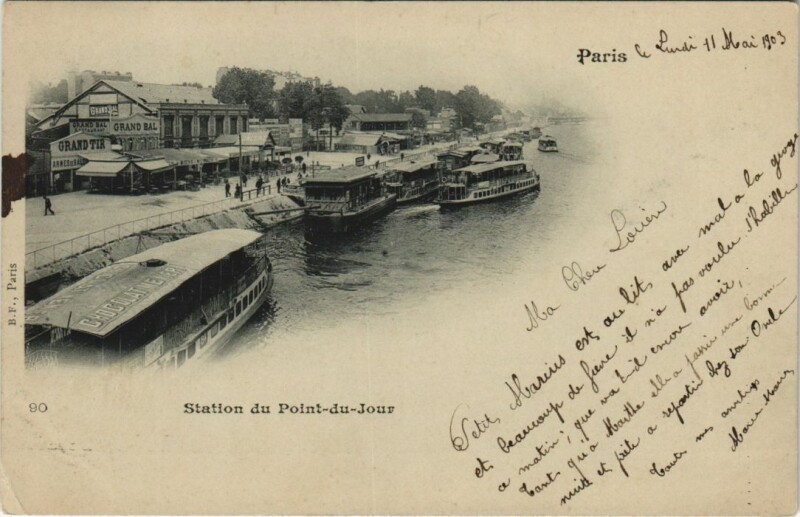 Paris
le Lundi 11 Mai 1903
GRAND BAL
GRAND BAL
GRAND TIR
CHOCOLAT
B.F., Paris
90
Station du Point-du-Jour
Ma Cher Lucien
Petit Marius est au lit avec mal a la gorge
et beaucoup de fievre il n'a pas voulu s'habiller
a matin; que va t-il encore avoir,
tant qu'a Marthe elle a passer une bonne
nuit et prête a repartir chez son Oncle
touts mes amities
Marie